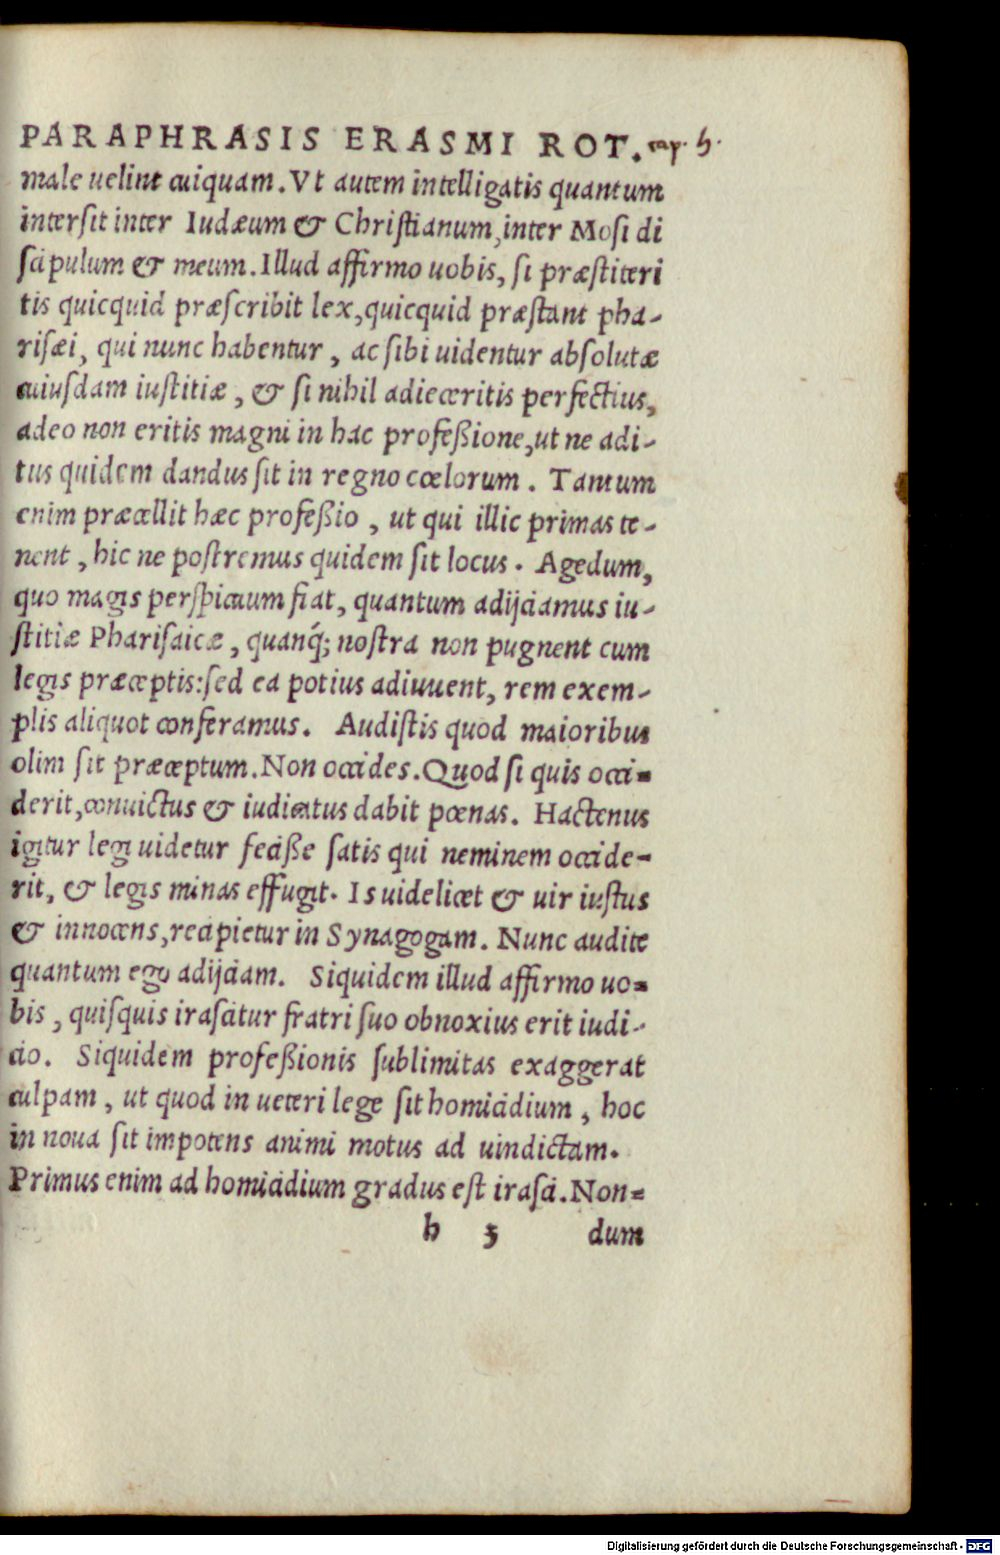 PARAPHRASIS ERASMI ROT. cap. 5.
male uelint cuiquam. Vt autem intelligatis quantum
intersit inter Iudæum & Christianum, inter Mosi di
scipulum & meum. Illud affirmo uobis, si præstiteri
tis quicquid præscribit lex, quicquid præstant pha-
risæi, qui nunc habentur, ac sibi uidentur absolutæ
cuiusdam iustitiæ, & si nihil adieceritis perfectius,
adeo non eritis magni in hac professione, ut ne adi-
tus quidem dandus sit in regno cœlorum. Tantum
enim præcellit hæc professio, ut qui illic primas te-
nent, hic ne postremus quidem sit locus. Agedum,
quo magis perspicuum fiat, quantum adijciamus iu-
stitiæ Pharisaicæ, quanq́; nostra non pugnent cum
legis præceptis: sed ea potius adiuuent, rem exem-
plis aliquot conferamus. Audistis quod maioribus
olim sit præceptum. Non occides. Quod si quis occi=
derit, conuictus & iudicatus dabit pœnas. Hactenus
igitur legi uidetur fecisse satis qui neminem occide=
rit, & legis minas effugit. Is uidelicet & uir iustus
& innocens, recipietur in Synagogam. Nunc audite
quantum ego adijciam. Siquidem illud affirmo uo=
bis, quisquis irascitur fratri suo obnoxius erit iudi-
cio. Siquidem professionis sublimitas exaggerat
culpam, ut quod in ueteri lege sit homicidium, hoc
in noua sit impotens animi motus ad uindictam.
Primus enim ad homicidium gradus est irasci. Non=
b 3 dum
Digitalisierung gefördert durch die Deutsche Forschungsgemeinschaft - DFG